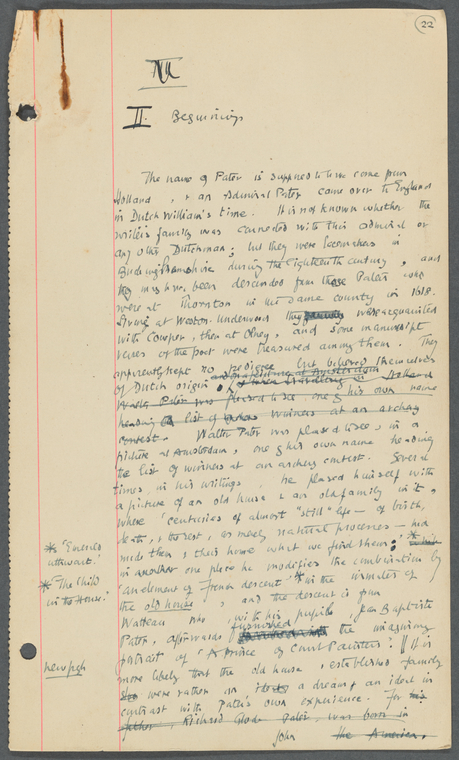 22
II. Beginnings
The name of Pater is supposed to have come from
Holland, & an Admiral Pater came over to England
in Dutch William's time. It is not known whether the
writer's family was connected with this admiral or
any other Dutchman; but they were lacemakers in
Buckinghamshire during the Eighteenth century, and
they may have been descended from those Paters who
were at Thornton in the same county in 1618.
Living at Weston Underwood they were acquainted
with Cowper, then at Olney, and some manuscript
verses of the poet were treasured among them. They
apparently kept no pedigree but believed themselves
of Dutch origin. and in a picture at Amsterdam
Walter Pater was pleased to see one of his own name
heading a list of winners at an archery
contest. Walter Pater was pleased to see, in a
picture at Amsterdam, one of his own name heading
the list of winners at an archery contest. Several
times, in his writings, he pleased himself with
a picture of an old house & an old family in it,
where "centuries of almost "still" life – of birth,
death, & the rest, as merely natural processes – had
made them & their home what we find them:
in another one place he modifies the combination by
"an element of French descent" * in the inmates of
the old house, and the descent is from
Watteau who, with his pupil, Jean Baptiste
Pater, afterwards furnished the imaginary
portrait of "A Prince of Court Painters". || It is
more likely that the old house, & established family
were rather an a dream & an ideal in
contrast with Pater's own experience. For his
father, Richard Glode Pater, was born in
John the America,
* "Emerald
Uthwart."
* "The Child
in the House."
new pgh